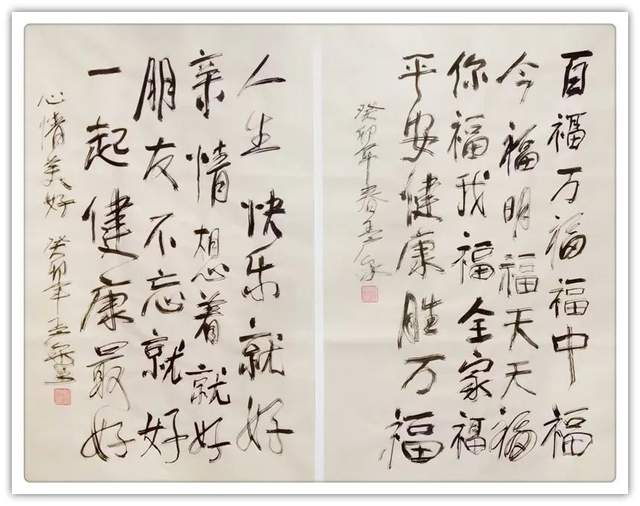 百福万福福中福
今福明福天天福
你福我福全家福
平安健康胜万福
癸卯年春
人生快乐就好
亲情想着就好
朋友不忘就好
一起健康最好
心情美好 癸卯年